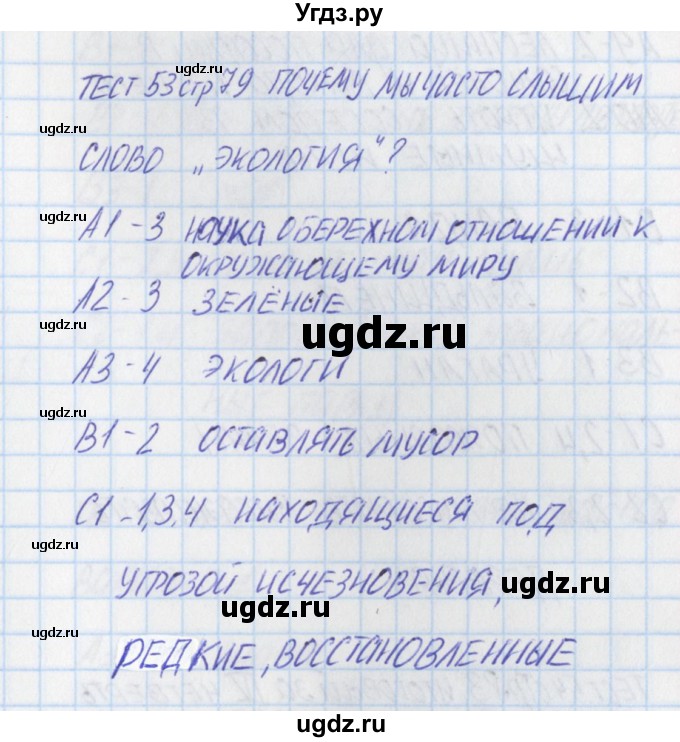 Угдз.ру
ТЕСТ 53 стр 79 ПОЧЕМУ МЫ ЧАСТО СЛЫШИМ
СЛОВО „ЭКОЛОГИЯ"?
А1 - 3 НАУКА О БЕРЕХНОМ ОТНОШЕНИИ К
ОКРУЖАЮЩЕМУ МИРУ
А2 - 3 ЗЕЛЁНЫЕ
А3 - 4 ЭКОЛОГИ
В1 - 2 ОСТАВЛЯТЬ МУСОР
С1 - 1,3,4 НАХОДЯЩИЕСЯ ПОД
УГРОЗОЙ ИСЧЕЗНОВЕНИЯ,
РЕДКИЕ, ВОССТАНОВЛЕННЫЕ
ugdz.ru
ugdz.ru
ugdz.ru
ugdz.ru
ugdz.ru
ugdz.ru
ugdz.ru
ugdz.ru
ugdz.ru
ugdz.ru
ugdz.ru
ugdz.ru
ugdz.ru
ugdz.ru